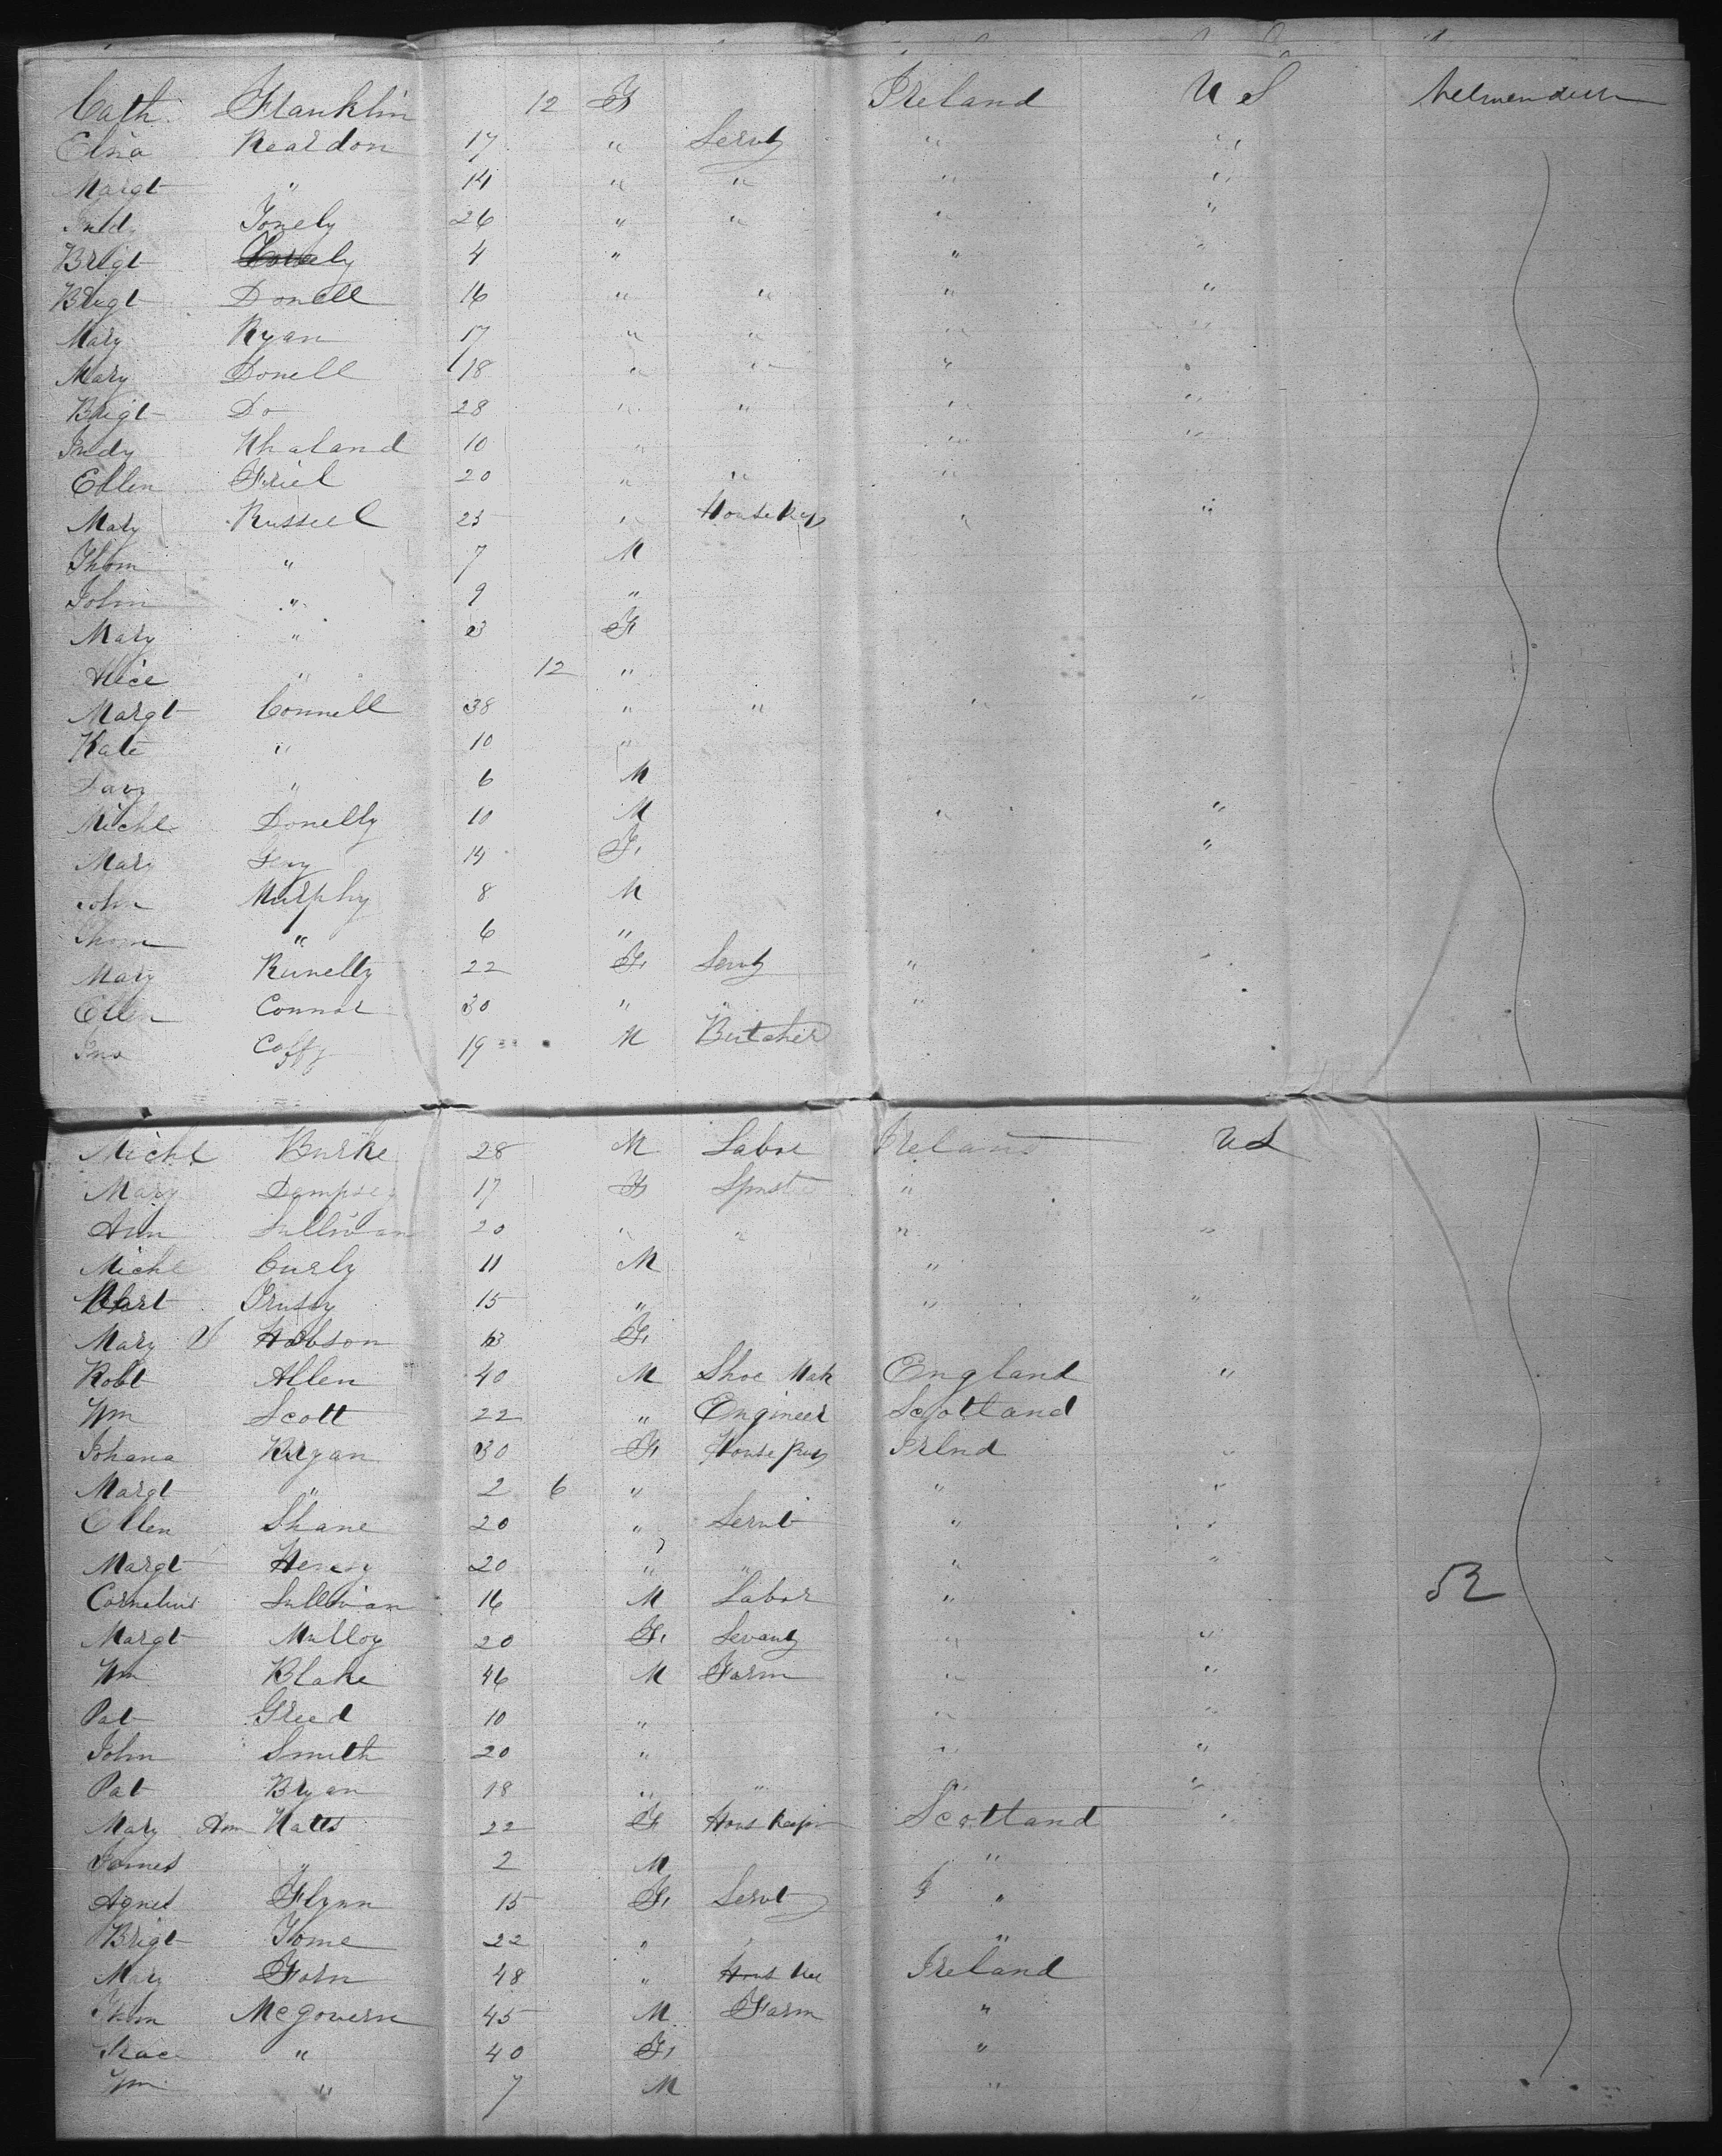 Cath Franklin 12 F Ireland U S
Elna Reardon 17 " Servt " "
Margt " 14 " " " "
Tonely 26 " " " "
Brigt 4 " " "
Brigt Donell 16 " " " "
Mary Ryan 17 " " " "
Mary Donell 18 " " " "
Brigt Do 28 " " " "
Indy Whaland 10 " " "
Ellen Friel 20 " " "
Mary Russell 25 " House Kep " "
Thom " 7 M
John " 9 "
Mary " 3 F
Alice " 12 "
Margt Connell 38 " " " "
Kate " 10 "
Davy " 6 M
Michl Donelly 10 M " "
Mary 14 F " "
John Murphy 8 M
Thom " 6 "
Mary Runelly 22 F Servt " "
Ellen Connor 30 " " "
Jno Coffy 19 M Butcher
Michl Burke 28 M Labor Ireland U S
Mary Dempsey 17 F Spinst "
Ann Sullivan 20 " " " "
Michl Curly 11 M "
Mart 15 " " "
Mary Hobson 13 F
Robt Allen 40 M Shoe Mak England "
Wm Scott 22 " Engineer Scotland
Johana Ryan 30 F House Kep Irlnd "
Margt " 2 6 " " "
Ellen Shane 20 " Servt " "
Margt 20 " " " "
Cornelius Sullivan 16 M Labor " 52
Margt Mulloy 20 F Servant " "
Wm Blake 46 M Farm " "
Pat Greed 10 " " "
John Smith 20 " " "
Pat Bryan 18 " " " "
Mary Ann Watts 22 F Hous Keepr Scotland "
James " 2 M "
Agnes Flynn 15 F Servt "
Brigt Tome 22 " "
Mary Forn 48 " Hous Kee Ireland
Thom McGovern 45 M Farm "
" 40 F "
Wm " 7 M "